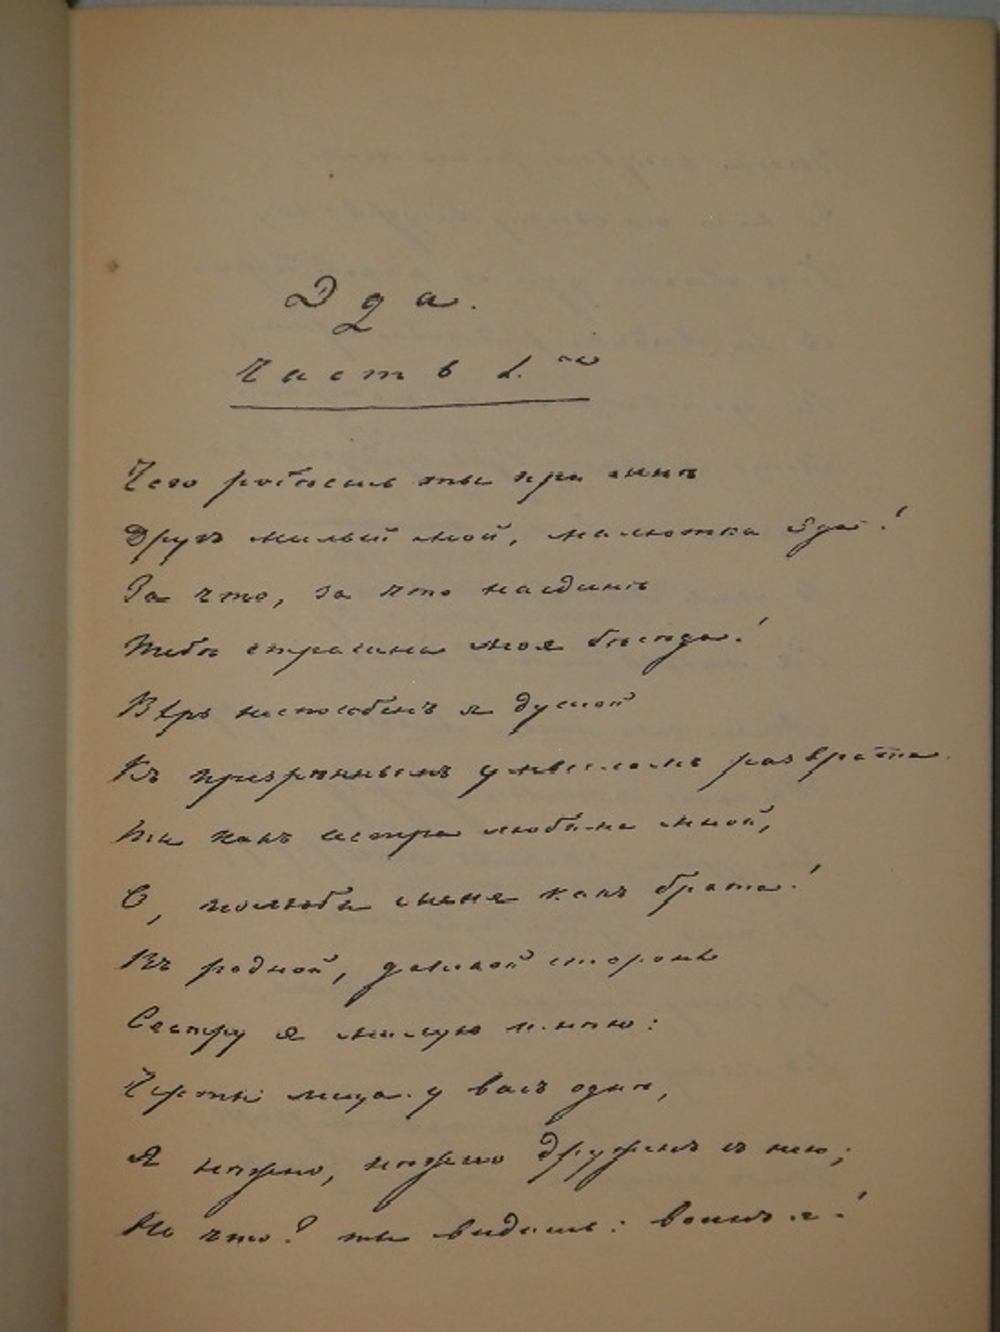 Эда.
Часть 1.ая
Чего робѣешь ты при мнѣ
Другъ милый мой, малютка Эда!
За что, за что наединѣ
Тебѣ страшна моя бѣседа!
Вѣрь неспособенъ я душой
Къ презрѣннымъ умысламъ разврата.
Ты какъ сестра любима мной,
О, полюби меня какъ брата!
Въ родной, далекой сторонѣ
Сестру я милую имѣю:
Черты лица у васъ однѣ,
Я нѣжно, нѣжно друженъ съ нею;
Но что? ты видишь: воинъ я!